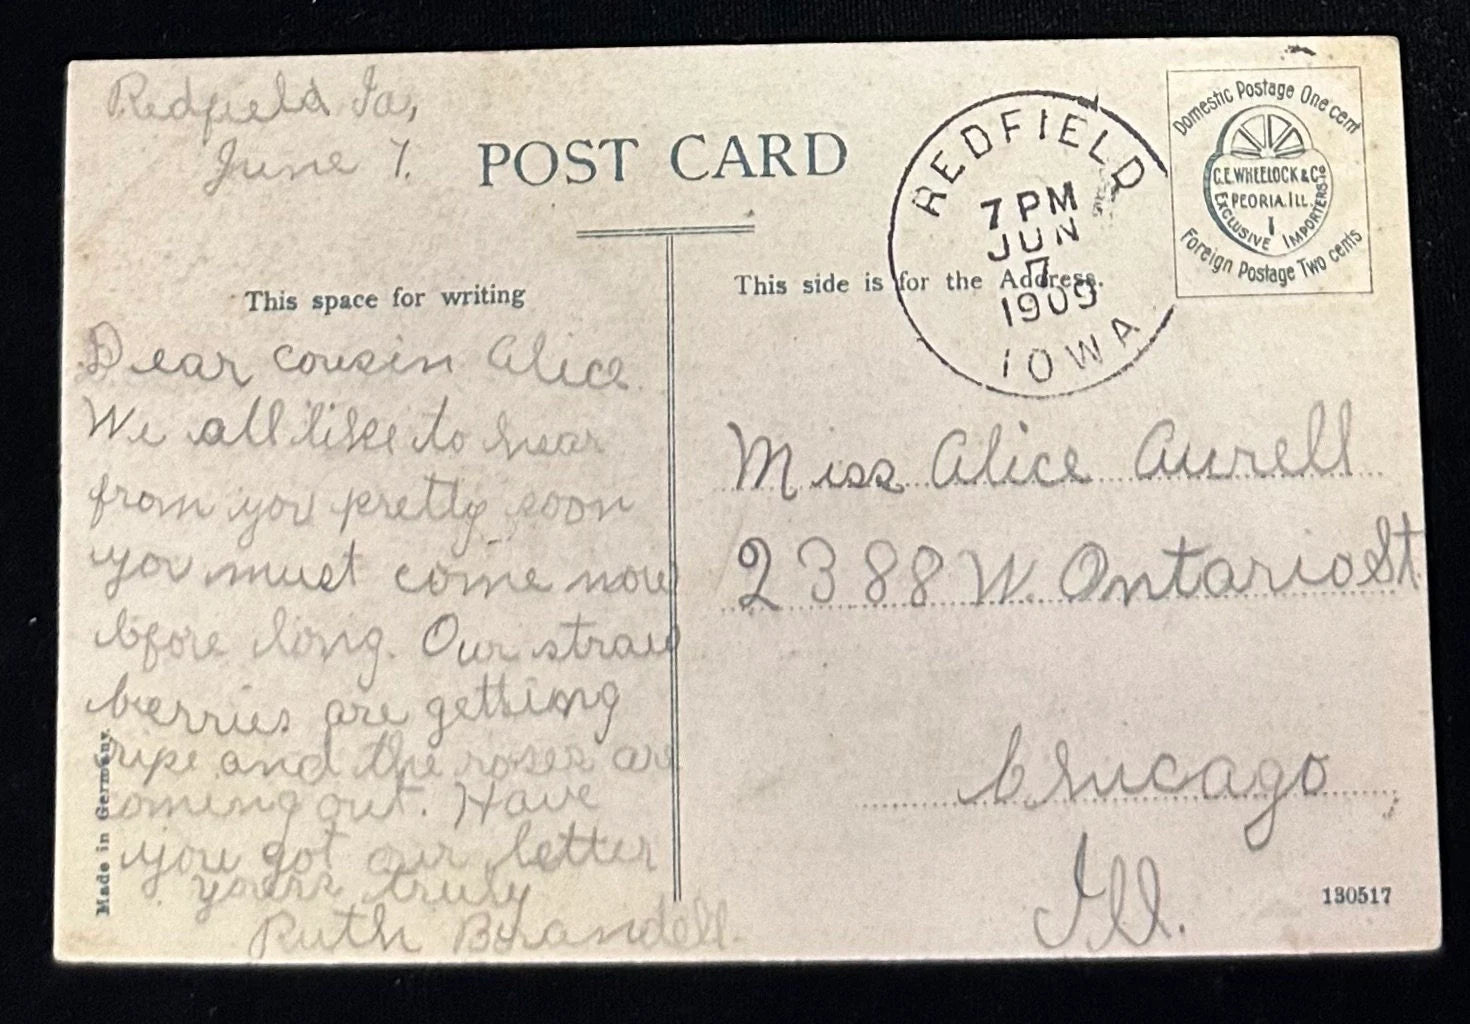 Redfield Ia,
June 7.
POST CARD
This space for writing
Dear cousin Alice
We all like to hear
from you pretty soon
you must come now
before long. Our straw
berries are getting
ripe and the roses are
coming out. Have
you got our letter
yours truly
Ruth Brandell.
Made in Germany.
This side is for the Address.
REDFIELD
7 PM
JUN
7
1909
IOWA
Domestic Postage One cent
C.E. WHEELOCK & Co
PEORIA. ILL.
EXCLUSIVE IMPORTERS
Foreign Postage Two cents
Miss Alice Aurell
2388 W. Ontario St.
Chicago
Ill.
130517